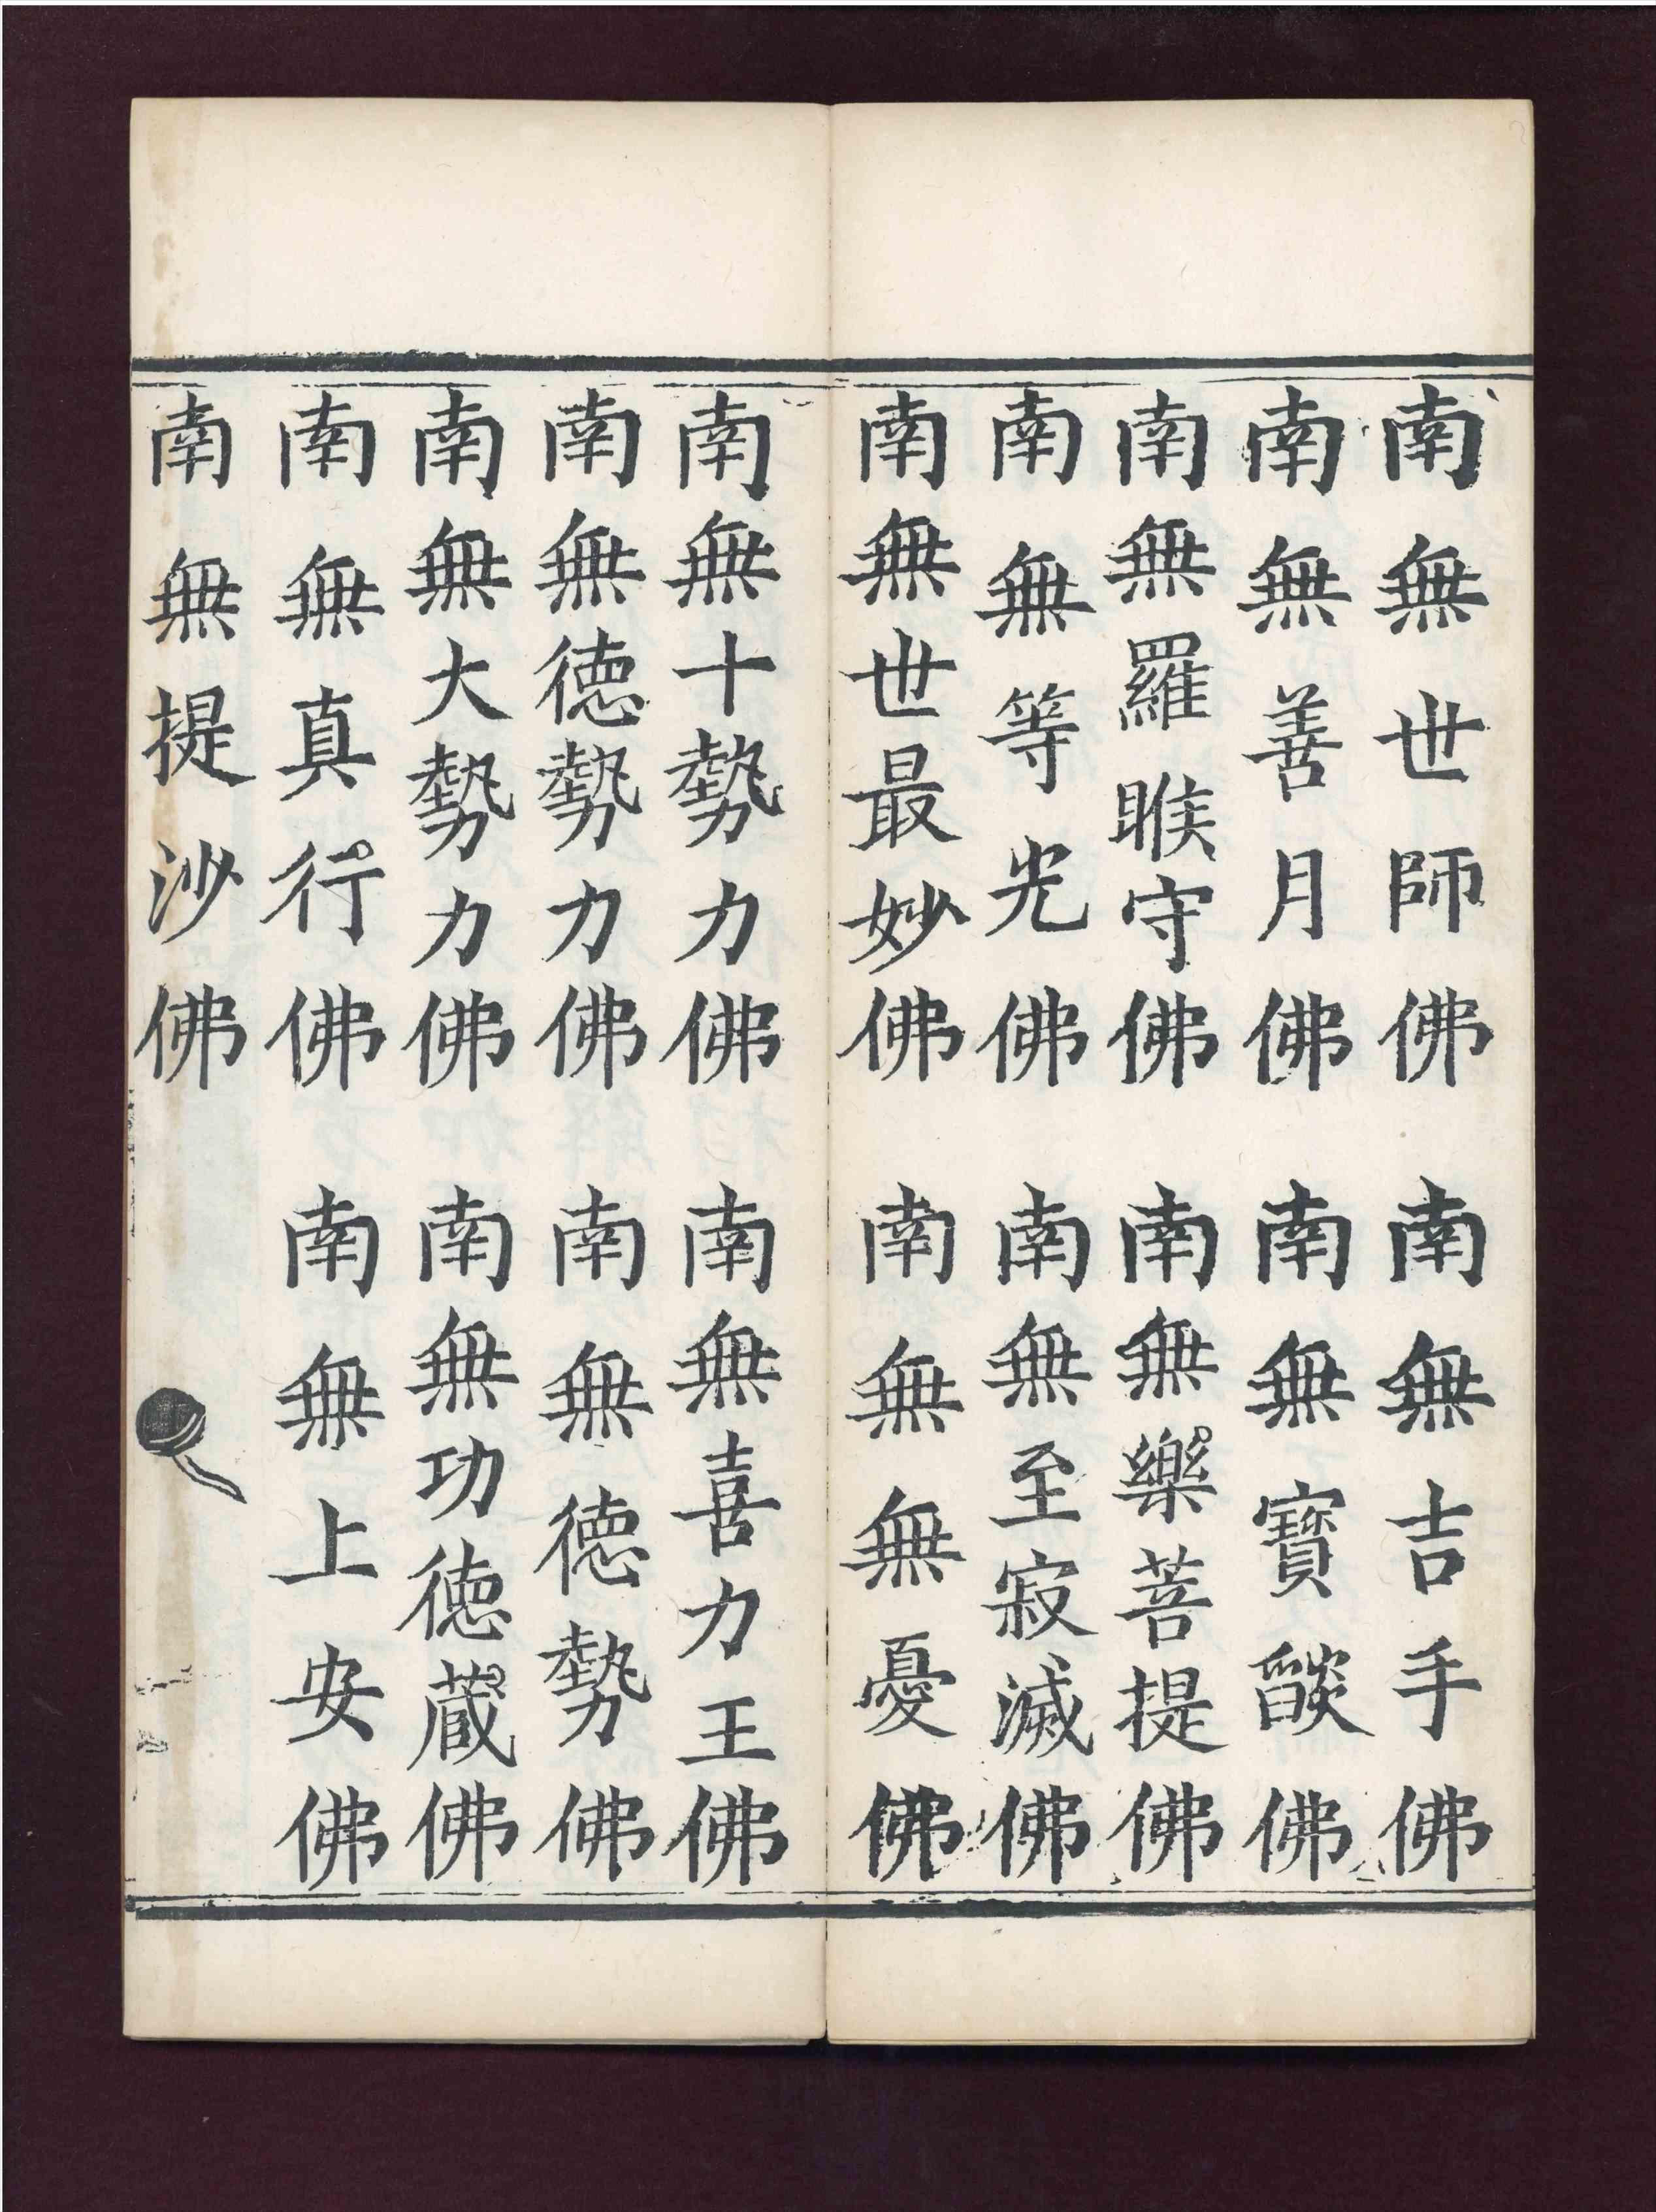 南無世師佛　南無吉手佛
南無善月佛　南無寶燄佛
南無羅睺守佛　南無樂菩提佛
南無等光佛　南無至寂滅佛
南無世最妙佛　南無無憂佛
南無十勢力佛　南無喜力王佛
南無徳勢力佛　南無徳勢佛
南無大勢力佛　南無功徳藏佛
南無真行佛　南無上安佛
南無提沙佛